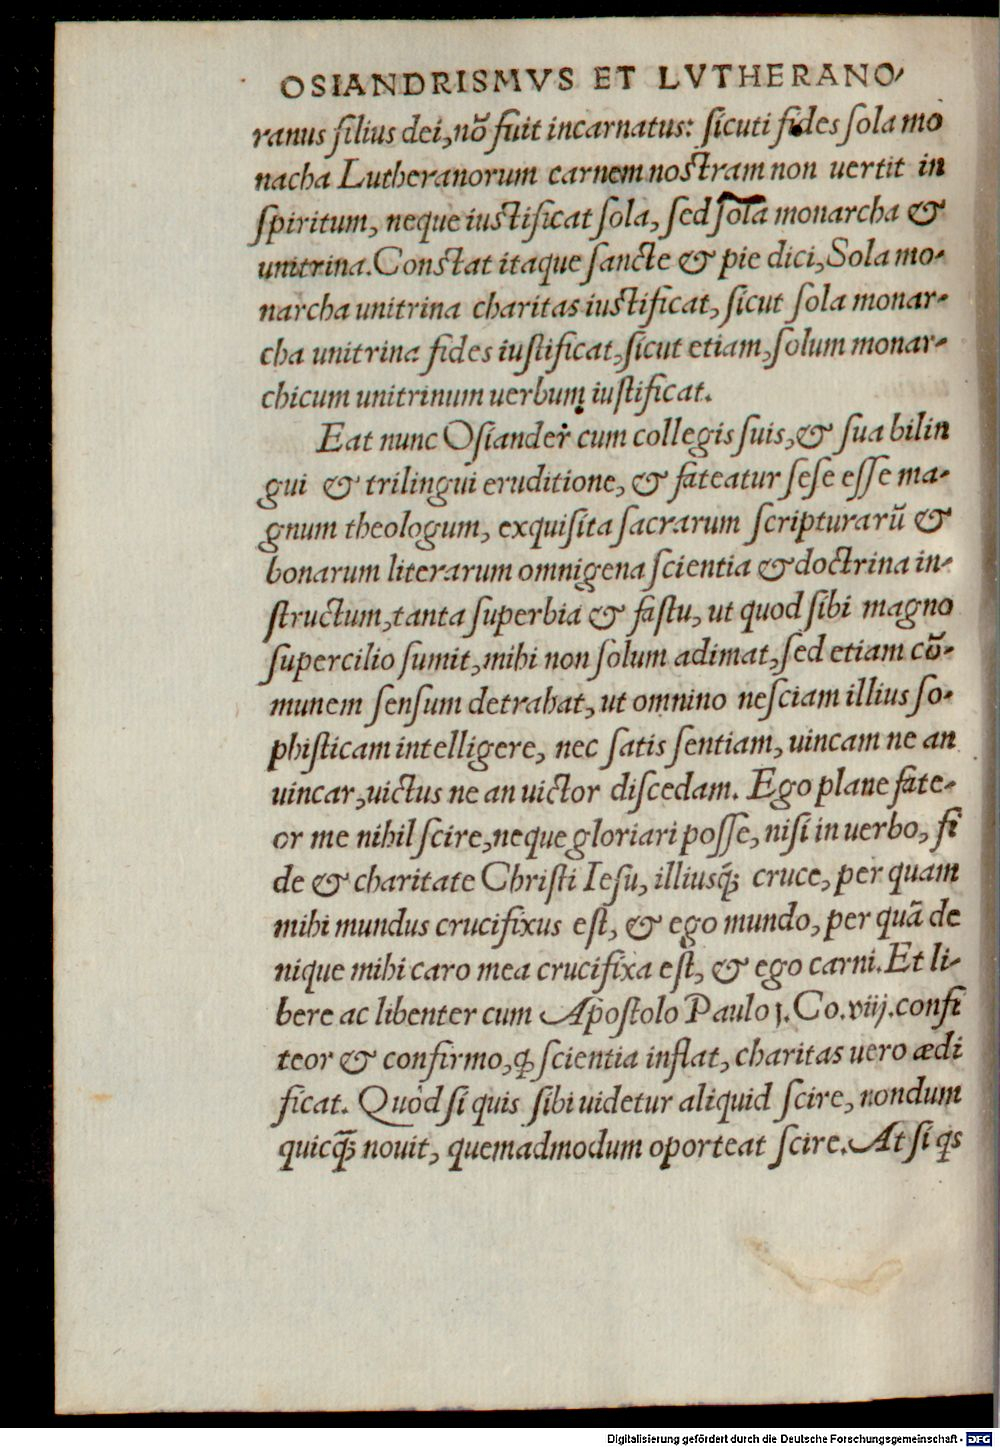 OSIANDRISMVS ET LVTHERANO-
ranus filius dei, nõ fuit incarnatus: sicuti fides sola mo
nacha Lutheranorum carnem nostram non uertit in
spiritum, neque iustificat sola, sed sola monarcha &
unitrina. Constat itaque sancte & pie dici, Sola mo-
narcha unitrina charitas iustificat, sicut sola monar-
cha unitrina fides iustificat, sicut etiam, solum monar-
chicum unitrinum uerbum iustificat.
Eat nunc Osiander cum collegis suis, & sua bilin
gui & trilingui eruditione, & fateatur sese esse ma-
gnum theologum, exquisita sacrarum scripturarũ &
bonarum literarum omnigena scientia & doctrina in-
structum, tanta superbia & fastu, ut quod sibi magno
supercilio sumit, mihi non solum adimat, sed etiam cõ-
munem sensum detrahat, ut omnino nesciam illius so-
phisticam intelligere, nec satis sentiam, uincam ne an
uincar, uictus ne an uictor discedam. Ego plane fate-
or me nihil scire, neque gloriari posse, nisi in uerbo, fi
de & charitate Christi Iesu, illiusq́; cruce, per quam
mihi mundus crucifixus est, & ego mundo, per quã de
nique mihi caro mea crucifixa est, & ego carni. Et li-
bere ac libenter cum Apostolo Paulo j. Co. viij. confi
teor & confirmo, ꝙ scientia inflat, charitas uero ædi
ficat. Quòd si quis sibi uidetur aliquid scire, nondum
quicq̃; nouit, quemadmodum oporteat scire. At si qs
Digitalisierung gefördert durch die Deutsche Forschungsgemeinschaft - DFG